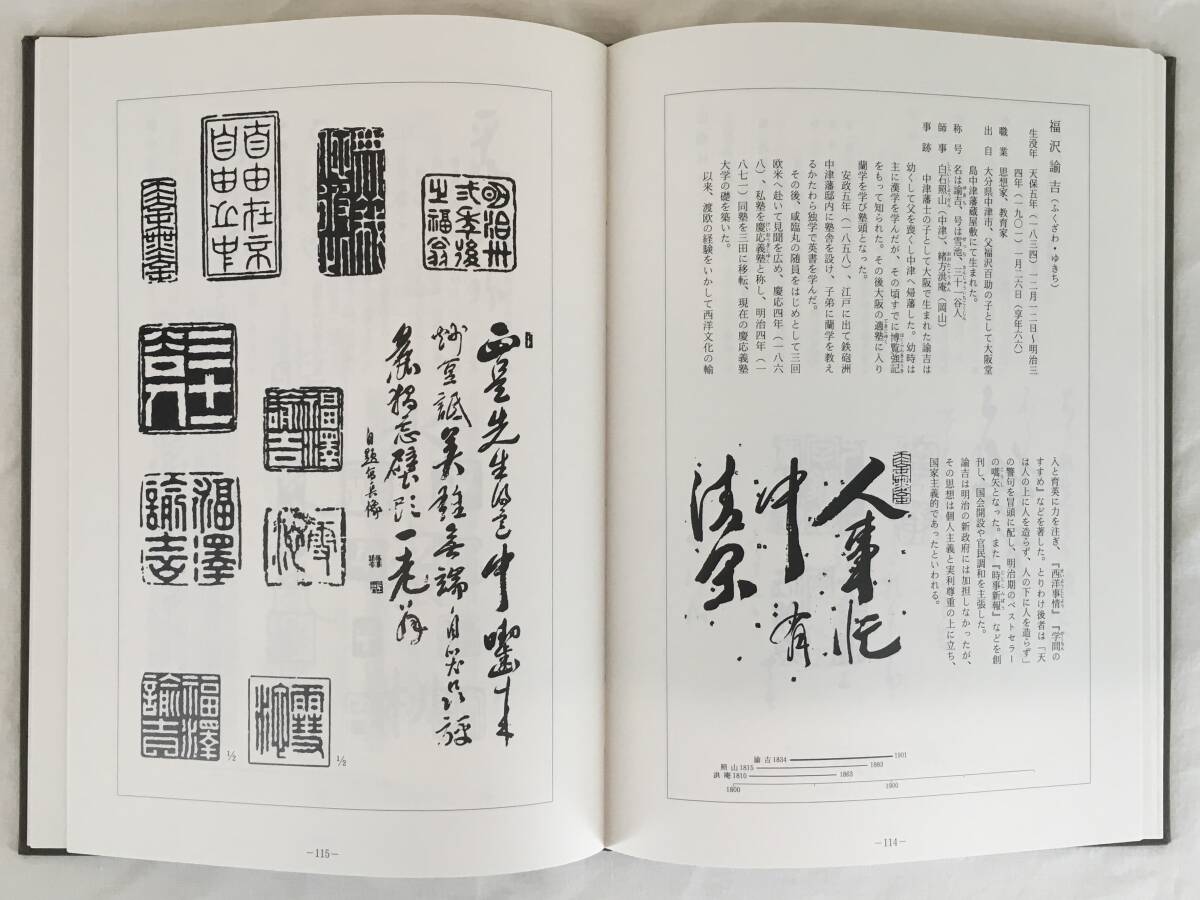 福沢諭吉（ふくざわ・ゆきち）
生没年　天保五年（一八三四）一二月一二日～明治三
四年（一九〇一）一月二六日（享年六六）
職業　思想家、教育家
出自　大分県中津市、父福沢百助の子として大阪堂
島中津藩蔵屋敷にて生まれた。
称号　名は諭吉、号は雪池、三十一谷人
師事　白石照山（中津）、緒方洪庵（岡山）
事跡　中津藩士の子として大阪で生まれた諭吉は
幼くして父を喪くし中津へ帰藩した。幼時は
主に漢学を学んだが、その頃すでに博覧強記
をもって知られた。その後大阪の適塾に入り
蘭学を学び塾頭となった。
安政五年（一八五八）、江戸に出て鉄砲洲
中津藩邸内に塾舎を設け、子弟に蘭学を教え
るかたわら独学で英書を学んだ。
その後、咸臨丸の随員をはじめとして三回
欧米へ赴いて見聞を広め、慶応四年（一八六
八）、私塾を慶応義塾と称し、明治四年（一
八七一）同塾を三田に移転、現在の慶応義塾
大学の礎を築いた。
以来、渡欧の経験をいかして西洋文化の輸
人と育英に力を注ぎ、『西洋事情』『学問の
すすめ』などを著した。とりわけ後者は「天
は人の上に人を造らず、人の下に人を造らず」
の警句を冒頭に配し、明治期のベストセラー
の嚆矢となった。また『時事新報』などを創
刊し、国会開設や官民調和を主張した。
諭吉は明治の新政府には加担しなかったが、
その思想は個人主義と実利尊重の上に立ち、
国家主義的であったといわれる。
人事忙
中有
清
諭吉1834
1901
照山1815
1883
洪庵1810
1863
1800
1900
－114－
明治卅
弐季後
之福翁
自由在不
自由之中
三十一
谷人
福澤
諭吉
福澤
諭吉
雪池
福澤
諭吉
½
雪池
½
－115－